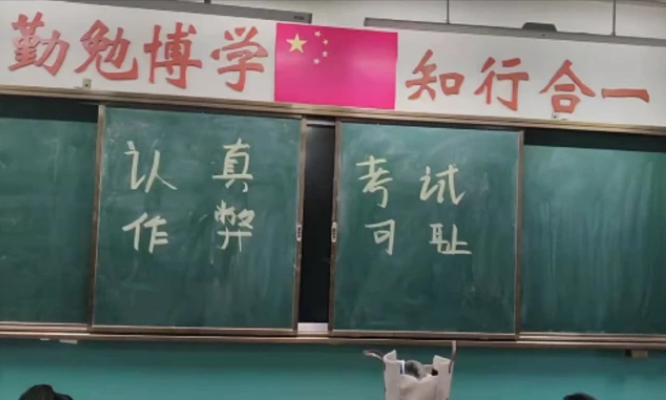 勤勉博学 知行合一
认真 考试
作弊 可耻